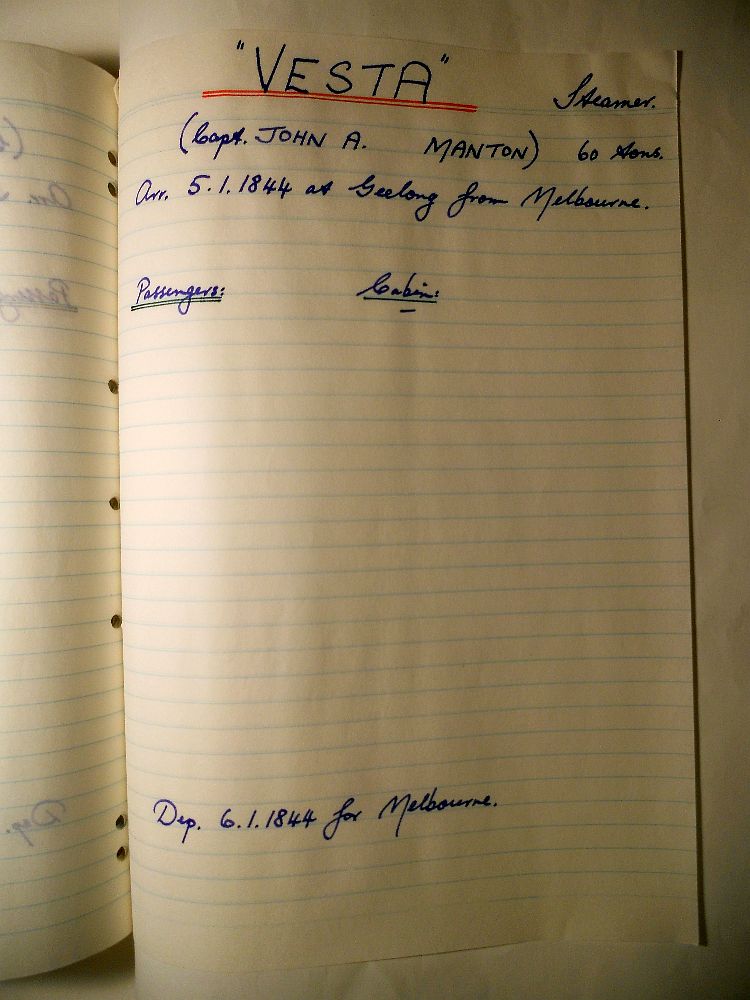 "VESTA"
Steamer.
(Capt. JOHN A. MANTON) 60 tons.
Arr. 5.1.1844 at Geelong from Melbourne.
Passengers: Cabin:
Dep. 6.1.1844 for Melbourne.